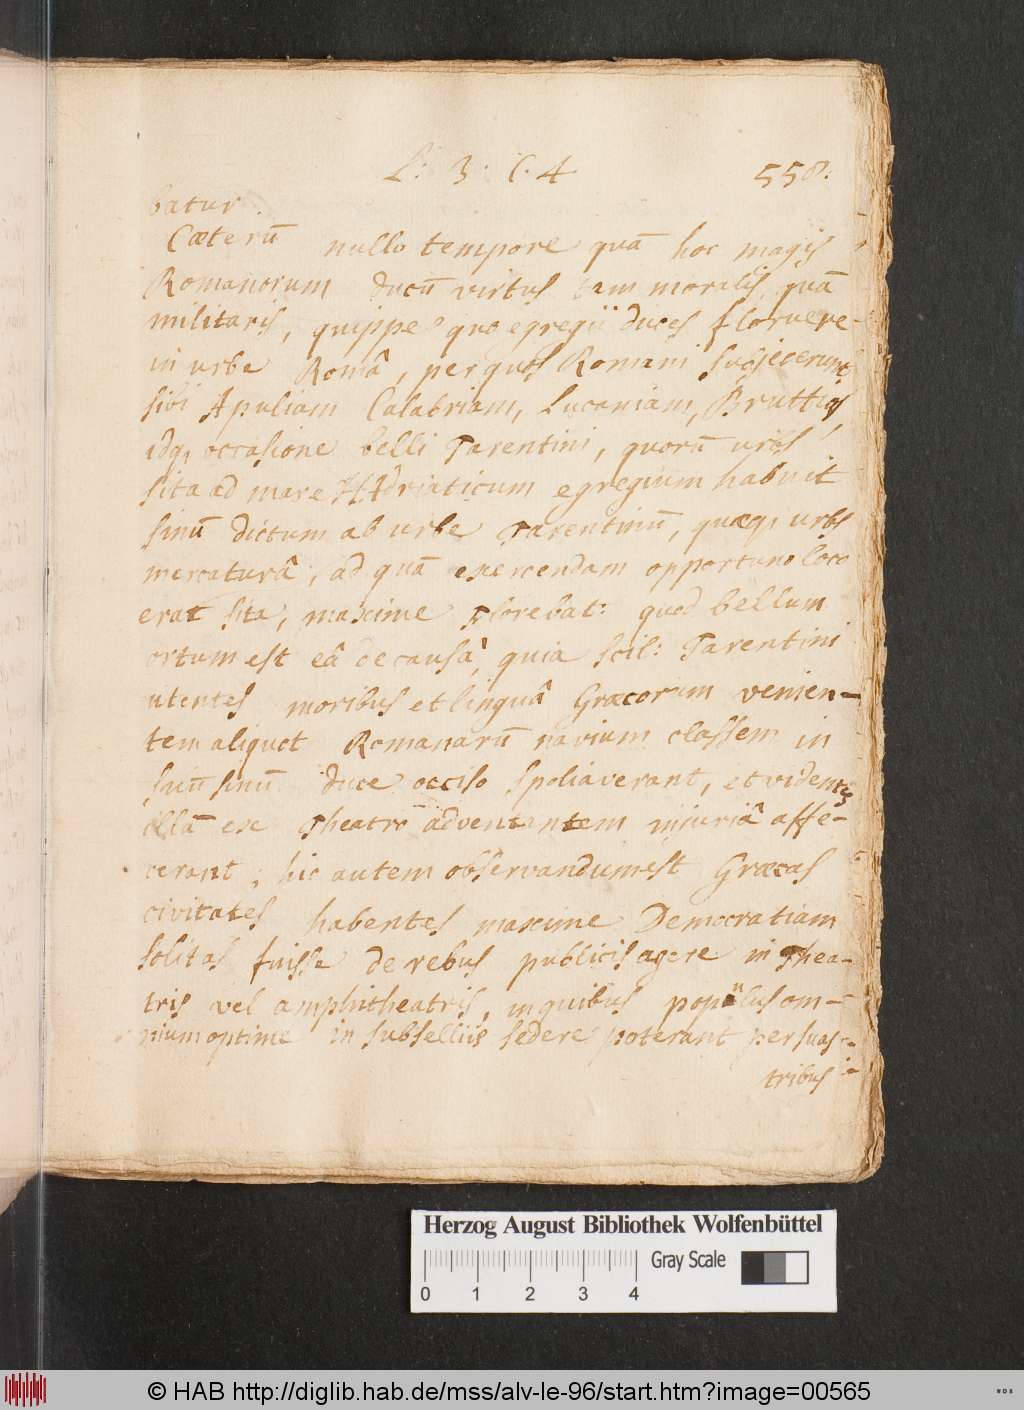 L: 3: C. 4
558.
batur.
Cæterū nullo tempore quā hoc magis
Romanorum ducū virtus tam moralis, quā
militaris, quippe quo egregii duces floruere
in urbe Româ, per quos Romani subjecerunt
sibi Apuliam Calabriam, Lucaniam, Bruttios
idq, occasione belli Tarentini, quorū urbs
sita ad mare Hadriaticum egregium habuit
sinū dictum ab urbe Tarentinū, quæq, urbs
mercaturâ, ad quā exercendam opportuno loco
erat sita, maxime florebat: quod bellum
ortum est eâ de causâ, quia scil: Tarentini
utentes moribus et linguâ Græcorum venien-
tem aliquot Romanarū navium classem in
suū sinū duce occiso spoliaverant, et videntes
illā ex theatro adventantem injuriâ affe-
cerant; hic autem observandum est Græcas
civitates habentes maxime Democratiam
solitas fuisse de rebus publicis agere in thea-
tris vel amphitheatris, in quibus populus om-
nium optime in subselliis sedere poterant persuas-
tribus
Herzog August Bibliothek Wolfenbüttel
0 1 2 3 4
Gray Scale
© HAB http://diglib.hab.de/mss/alv-le-96/start.htm?image=00565